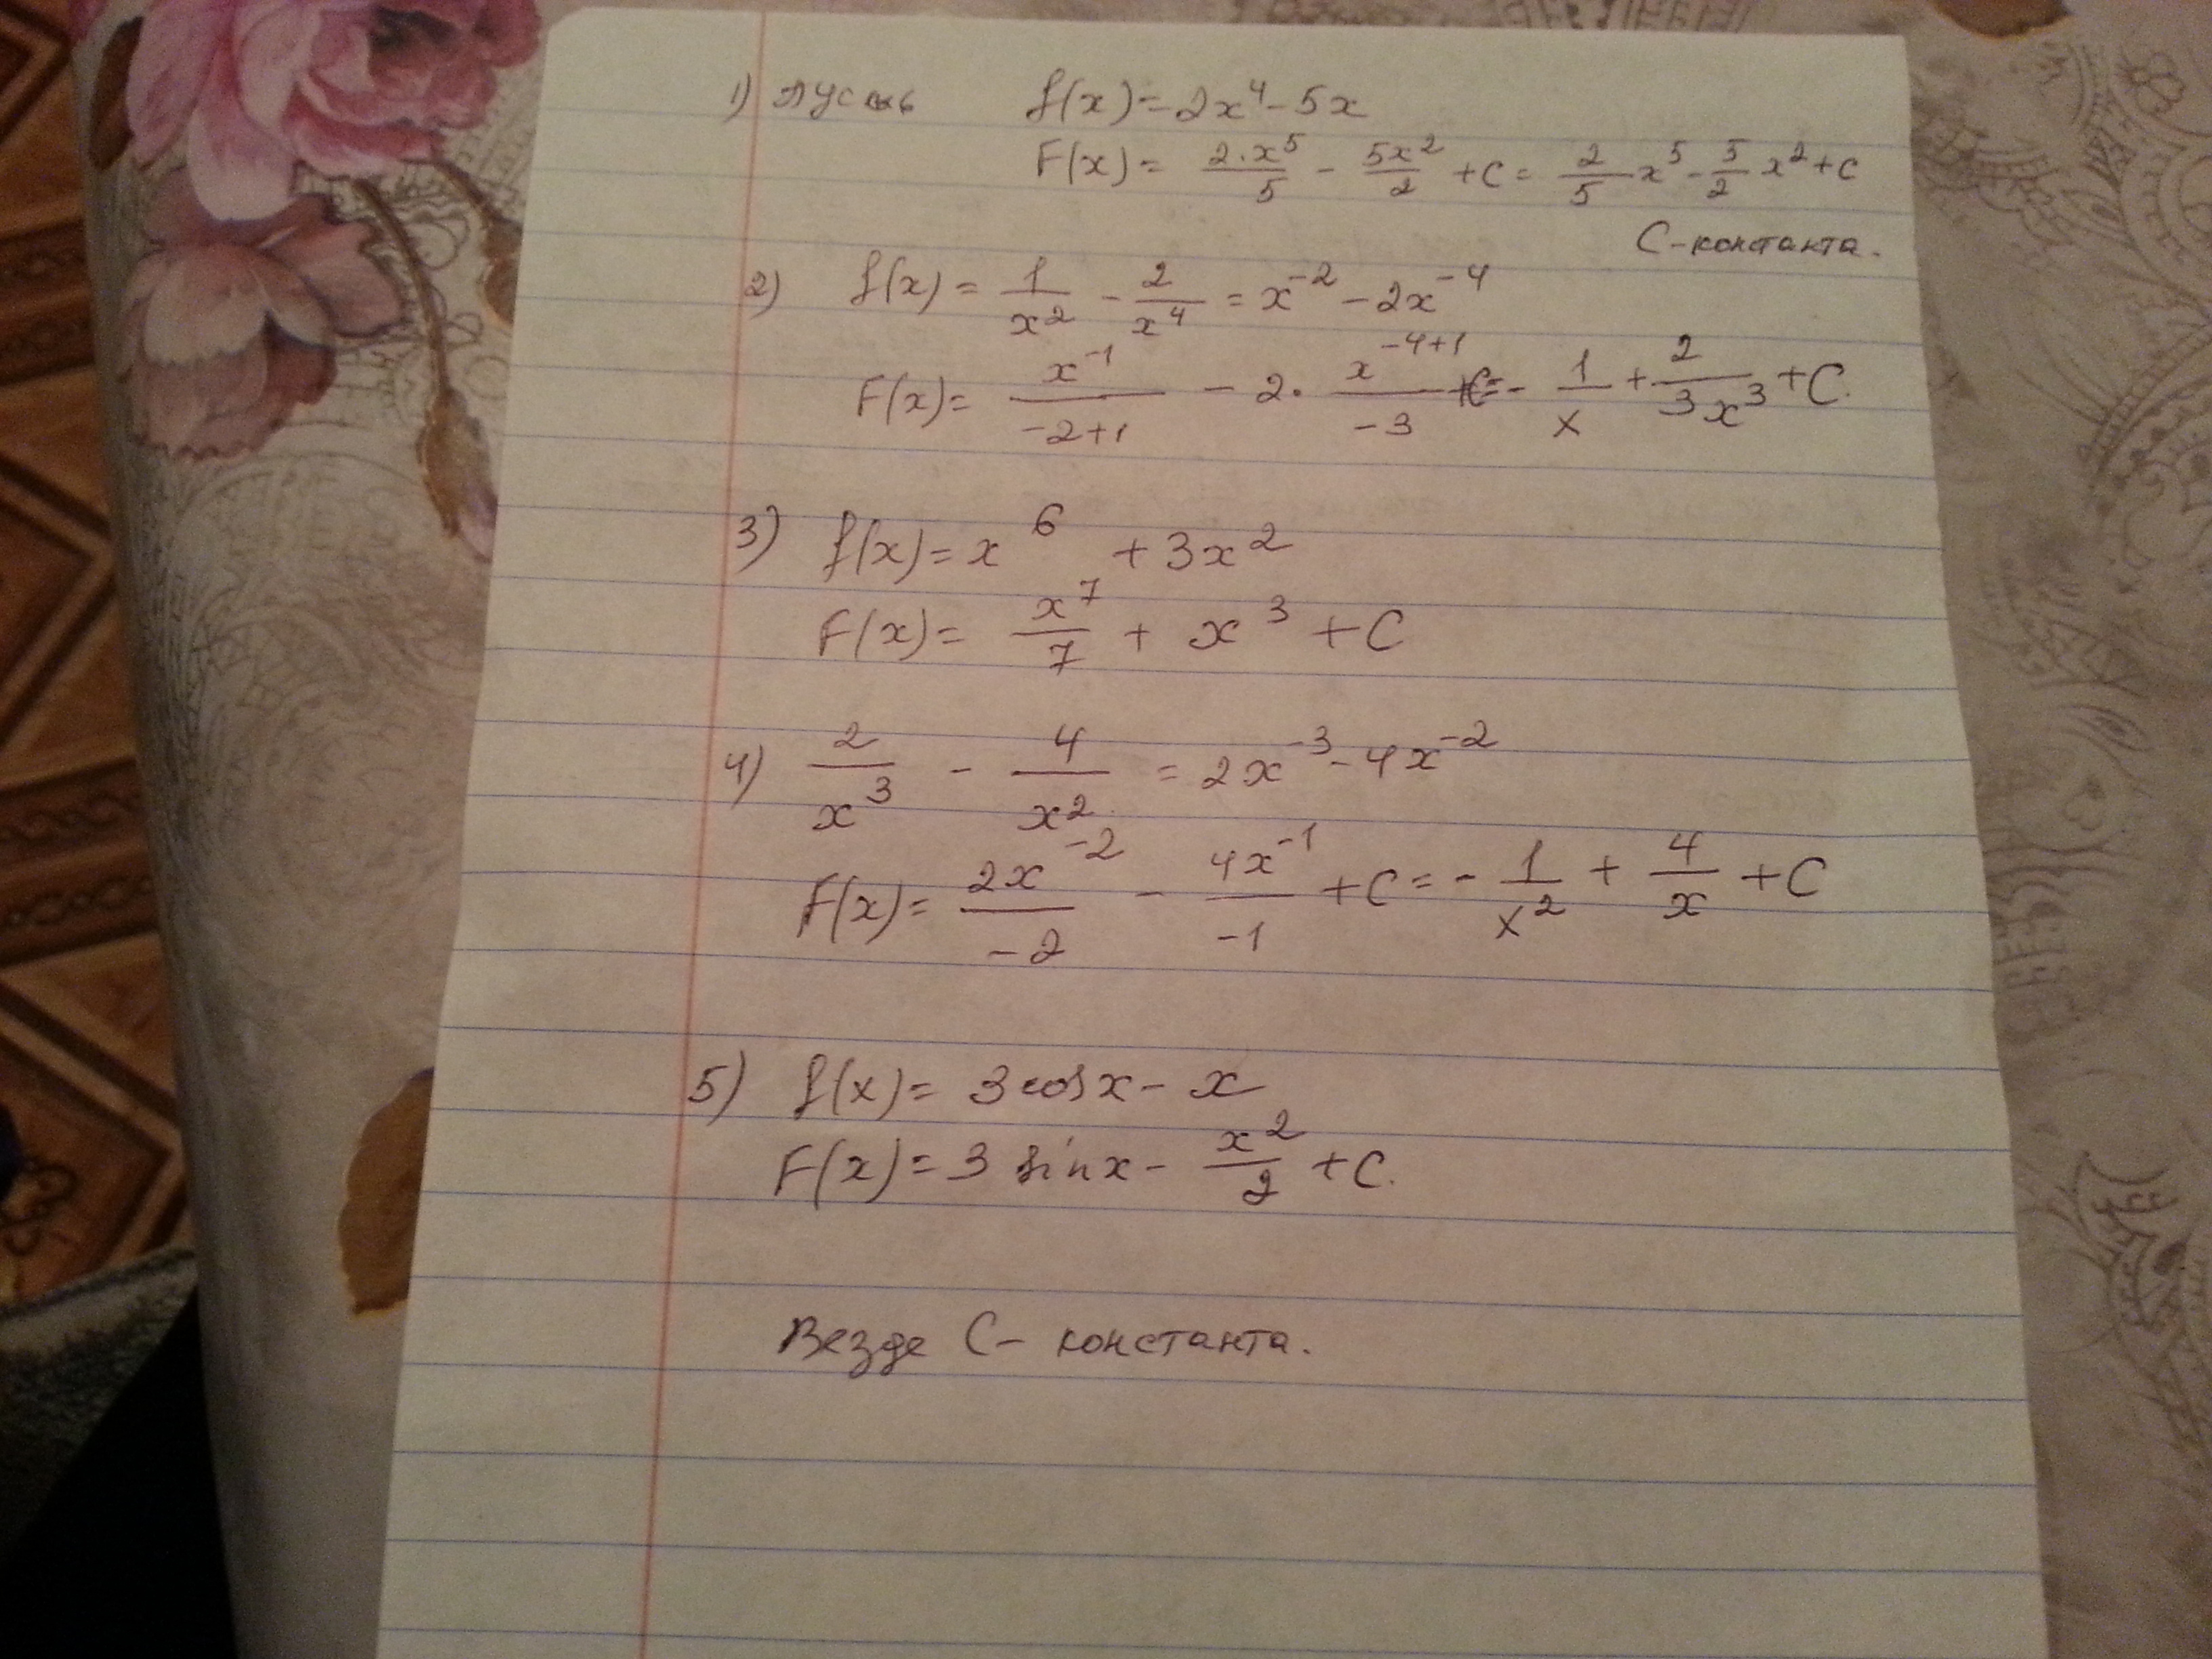 1) пусть f(x)=2x⁴-5x
F(x)= 2·x⁵/5 - 5x²/2 +C= 2/5 x⁵- 5/2 x²+C
C-константа.
2) f(x)= 1/x² - 2/x⁴ = x⁻²-2x⁻⁴
F(x)= x⁻¹/(-2+1) - 2· x⁻⁴⁺¹/(-3) +C= - 1/x + 2/(3x³) +C.
3) f(x)=x⁶ +3x²
F(x)= x⁷/7 + x³ +C
4) 2/x³ - 4/x² = 2x⁻³-4x⁻²
F(x)= 2x⁻²/(-2) - 4x⁻¹/(-1) +C= - 1/x² + 4/x +C
5) f(x)= 3cosx- x
F(x)=3 sinx- x²/2 +C.
Везде C- константа.